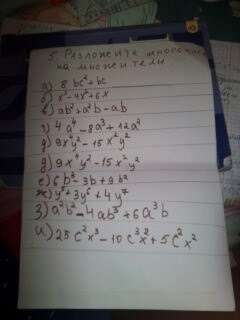 5. Разложите многочлен
на множители
а) 8bc²+bc
б) x³-4x²+6x
в) ab²+a²b-ab
г) 4a⁴-8a³+12a²
д) 9x⁴y²-15x²y²
д) 9x⁴y²-15x²y²
е) 6b³-3b+9b²
ж) y⁵+3y⁶+4y⁷
з) a²b²-4ab³+6a³b
и) 25c²x³-10c³x²+5c²x²